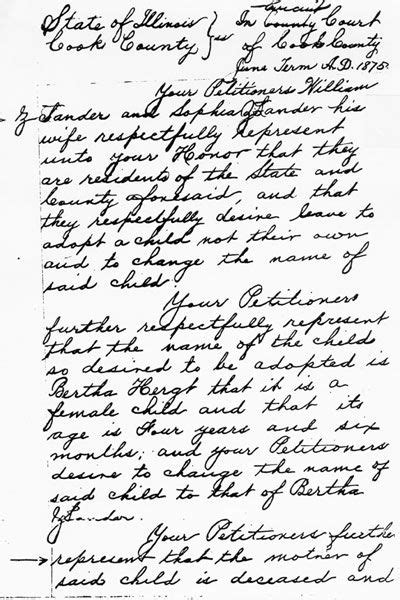 State of Illinois } ss In Circuit County Court
Cook County of Cook County
June Term A.D. 1875.
Your Petitioners William
Zander and Sophia Zander his
wife respectfully represent
unto your Honor that they
are residents of the State and
County aforesaid, and that
they respectfully desire leave to
adopt a child not their own
and to change the name of
said child
Your Petitioners
further respectfully represent
that the name of the childs
so desired to be adopted is
Bertha Hergt that it is a
female child and that its
age is Four years and six
months; and your Petitioners
desire to change the name of
said child to that of Bertha
Zander.
Your Petitioners further
represent that the mother of
said child is deceased and